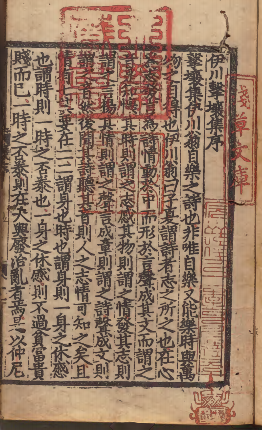 伊川擊壤集序
擊壤集伊川翁自樂之詩也非唯自樂又能樂時與萬
物之自得也伊川翁曰子夏謂詩者志之所之也在心
為志發言為詩情動於中而形於言聲成其文而謂之
音是知懷其時則謂之志感其物則謂之情發其志則
謂之言揚其情則謂之聲言成章則謂之詩聲成文則
謂之音然後聞其詩聽其音則人之志情可知之矣且
情有七其要在二二謂身也時也謂身則一身之休慼
也謂時則一時之否泰也一身之休慼則不過貧富貴
賤而已一時之否泰則在夫興廢治亂者焉是以仲尼